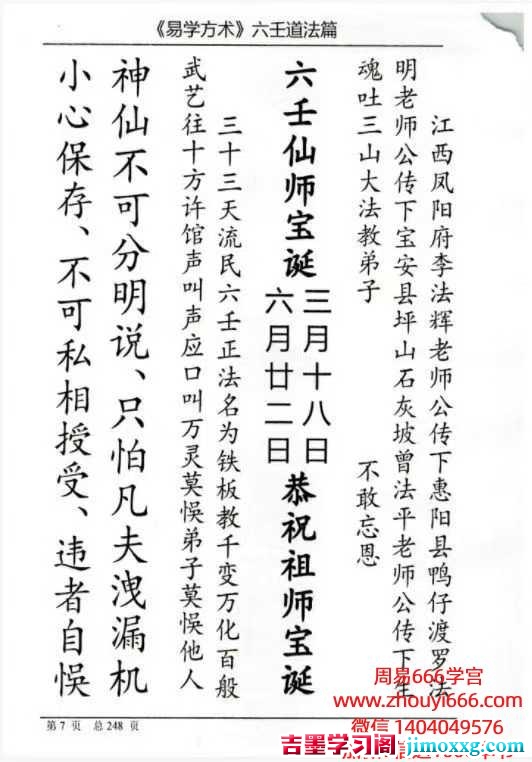 《易学方术》六壬道法篇
江西凤阳府李法辉老师公传下惠阳县鸭仔渡罗法
明老师公传下宝安县坪山石灰坡曾法平老师公传下生
魂吐三山大法教弟子 不敢忘恩
六壬仙师宝诞
三月十八日
六月廿二日
恭祝祖师宝诞
三十三天流民六壬正法名为铁板教千变万化百般
武艺往十方许馆声叫声应口叫万灵莫悮弟子莫悮他人
神仙不可分明说、只怕凡夫洩漏机
小心保存、不可私相授受、违者自悮
第 7 页 总 248 页
周易666学宫
www.zhouyi666.com
微信 1404049576
吉墨学习阁 jimoxxg.com